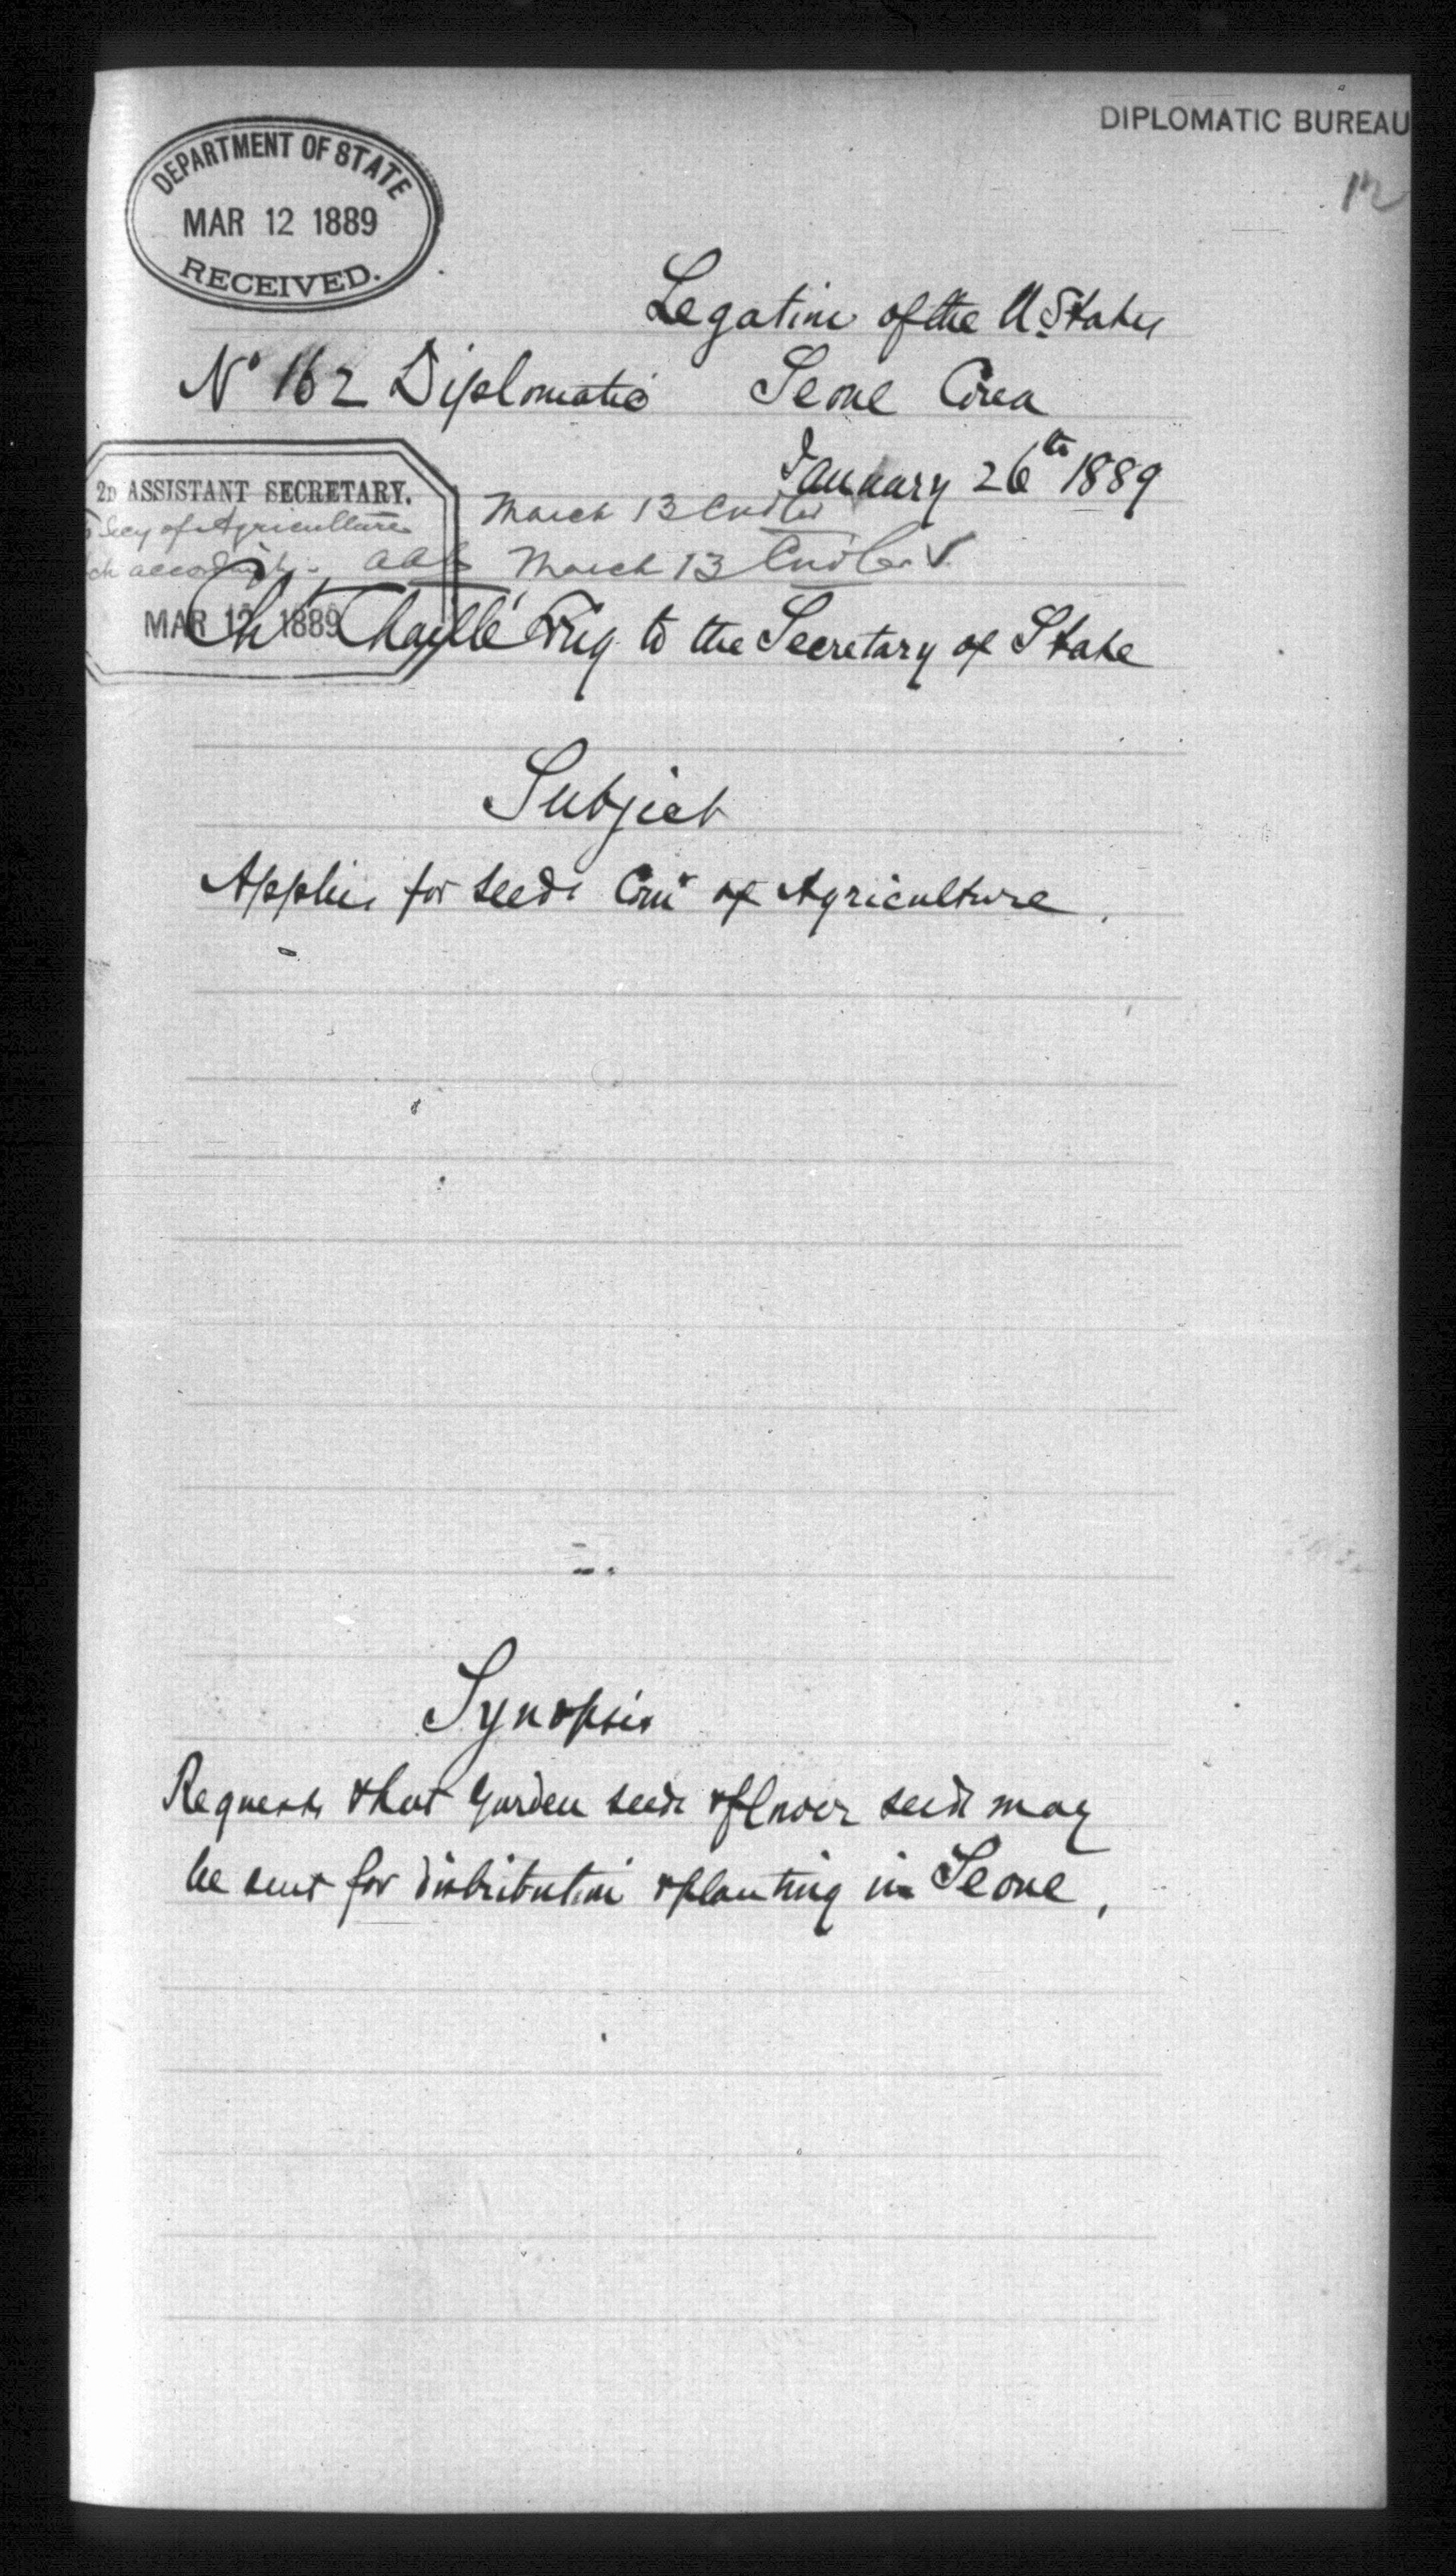 DIPLOMATIC BUREAU
DEPARTMENT OF STATE
MAR 12 1889
RECEIVED.
12
Legation of the U. States
No 162 Diplomatic Seoul Corea
January 26th 1889
2D ASSISTANT SECRETARY.
Secy of Agriculture
March 13
March 13
MAR 12 1889
Ch Chaillé Long to the Secretary of State
Subject
Applies for seeds Comr of Agriculture.
Synopsis
Requests that Garden seeds & flower seeds may
be sent for distribution & planting in Seoul.